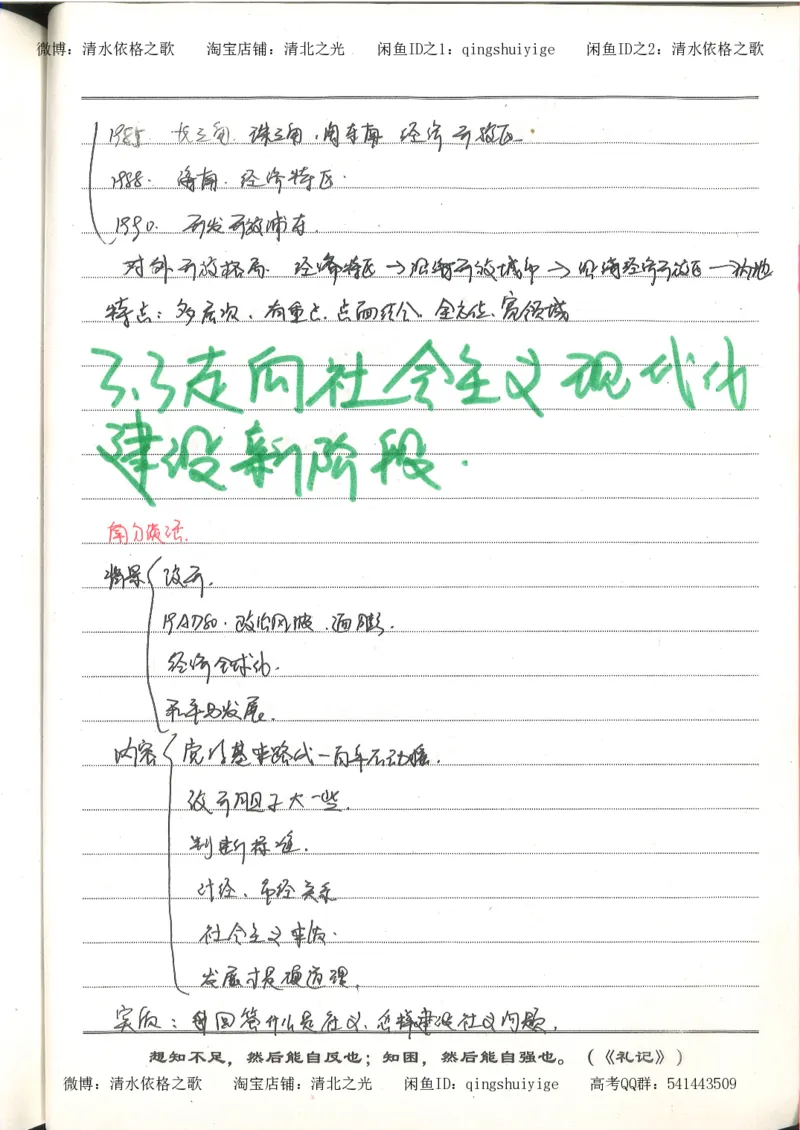 微博：清水依格之歌 淘宝店铺：清北之光 闲鱼ID之1：qingshuiyige 闲鱼ID之2：清水依格之歌
1985 长三角．珠三角．闽东南 经济开放区．
1988．海南．经济特区．
1990．开发开放浦东．
对外开放格局．经济特区→沿海开放城市→沿海经济开放区—内地
特点：多层次、有重点、点面结合、全方位、宽领域
3.3走向社会主义现代化
建设新阶段．
南方谈话．
背景 改开．
19AD80．政治风波．
经济全球化．
和平与发展．
内容 党的基本路线一百年不动摇．
改开胆子大一些．
判断标准．
计经、市经关系
社会主义本质．
发展才是硬道理．
实质：回答什么是社义、怎样建设社义问题．
想知不足，然后能自反也；知困，然后能自强也。（《礼记》）
微博：清水依格之歌 淘宝店铺：清北之光 闲鱼ID：qingshuiyige 高考QQ群：541443509